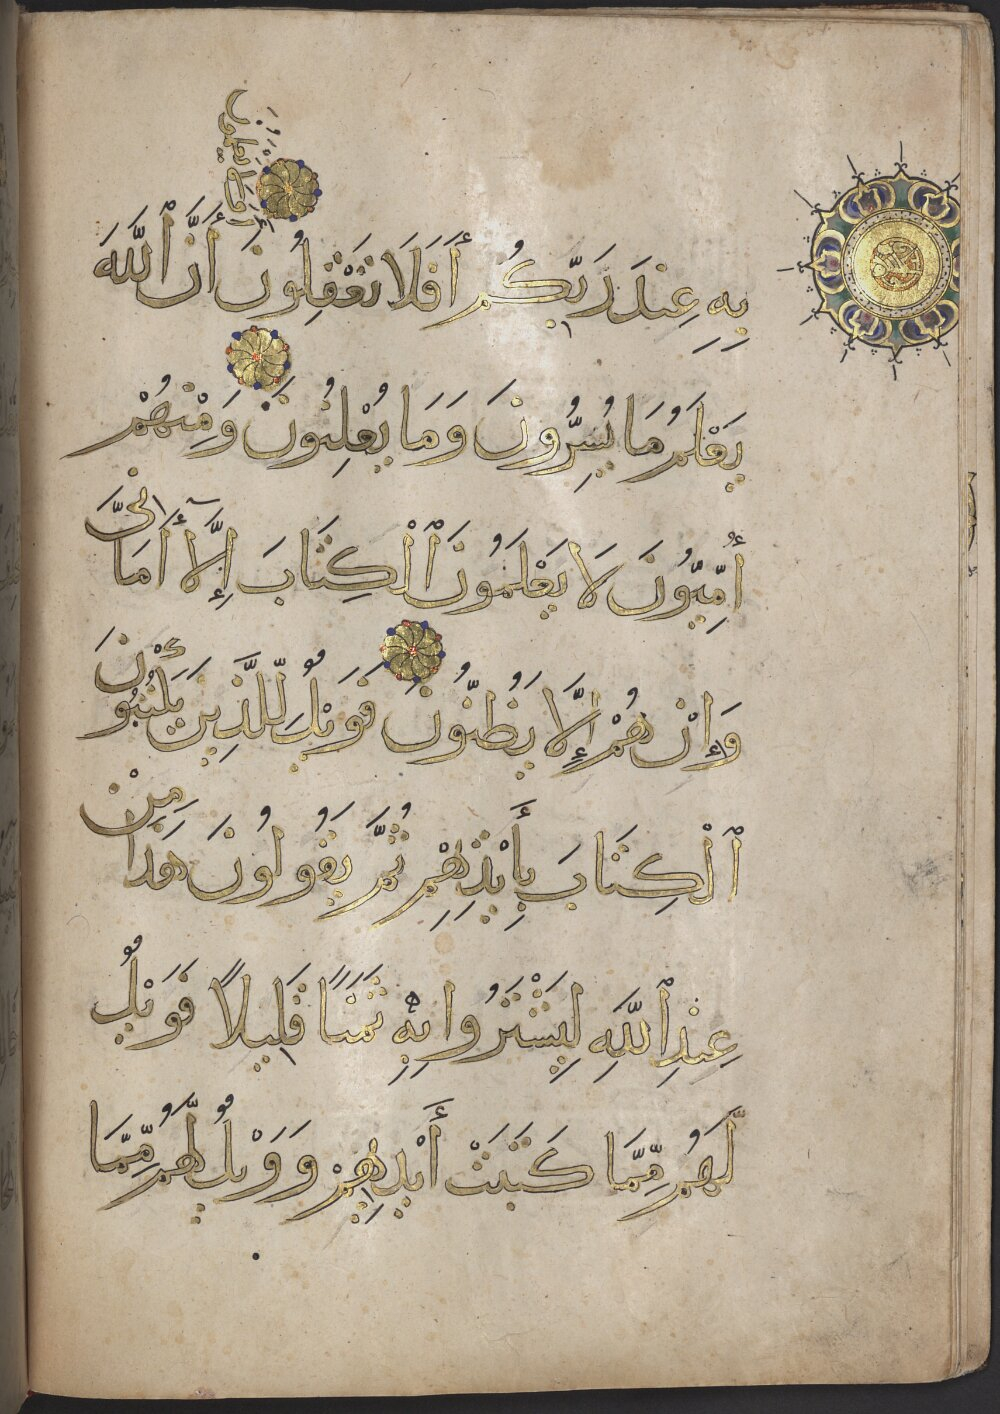 أفلا يعلمون
بِهِ عِندَ رَبِّكُمْ أَفَلَا تَعْقِلُونَ أَنَّ ٱللَّهَ
يَعْلَمُ مَا يُسِرُّونَ وَمَا يُعْلِنُونَ وَمِنْهُمْ
أُمِّيُّونَ لَا يَعْلَمُونَ ٱلْكِتَابَ إِلَّآ أَمَانِىَّ
وَإِنْ هُمْ إِلَّا يَظُنُّونَ فَوَيْلٌ لِّلَّذِينَ يَكْتُبُونَ
ٱلْكِتَابَ بِأَيْدِيهِمْ ثُمَّ يَقُولُونَ هَذَا مِنْ
عِندِ ٱللَّهِ لِيَشْتَرُوا بِهِ ثَمَنًا قَلِيلًا فَوَيْلٌ
لَّهُم مِّمَّا كَتَبَتْ أَيْدِيهِمْ وَوَيْلٌ لَّهُم مِّمَّا